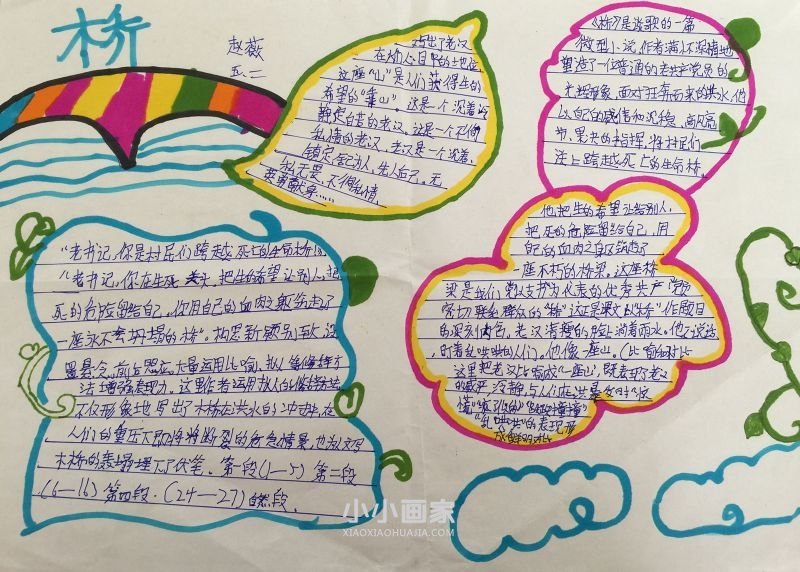 桥
赵薇
五.二
指出了老汉
在人们心目中的土地位,
这座"山"是人们获得生的
希望的"靠山"。这是一个沉着冷
静
的老汉。这是一个不徇
私情的老汉,老汉是一个沉着,
镇定,舍己为人,先人后己,无
私无畏,不徇私情,
英勇献身……
《桥》是谈歌的一篇
微型小说,作者满怀深情地
塑造了一位普通的老共产党员的
光辉形象,面对狂奔而来的洪水,他
以自己的威信和沉稳、高风亮
节、果决的指挥,将村民们
送上跨越死亡的生命桥。
他把生的希望让给别人,
把死的危险留给自己,用
自己的血肉之躯筑起了
一座不朽的桥梁。这座桥
梁是我们党以支书为代表的优秀共产党
密切联系群众的"桥"这正是课文以"桥"作题目
的深刻内含。老汉清瘦的脸上淌着雨水。他不说话
盯着乱哄哄的人们。他像一座山。(比喻和对比
这里把老汉比喻成"一座山",既表现了老汉
的威严、沉静,与人们在洪暴发时"惊
慌""疯了似的""跌跌撞撞"
"乱哄哄"的表现形
成鲜明对比
"老书记,你是村民们跨越死亡的生命桥!"
"老书记,你在生死关头,把生的希望让别人,把
死的危险留给自己,你用自己的血肉之躯筑起了
一座永不会坍塌的桥"。构思新颖别致,设
置悬念,前后照应,大量运用比喻,拟人等修辞方
法增强表现力。这里作者运用拟人的修辞方法
不仅形象地写出了木桥在洪水的冲击,在
人们的重压下即将将断裂的危急情景,也为文写
木桥的轰塌埋下了伏笔。第一段(1—5)第二段
(6—16)第四段.(24—27)自然段。
小小画家
XIAOXIAOHUAJIA.COM